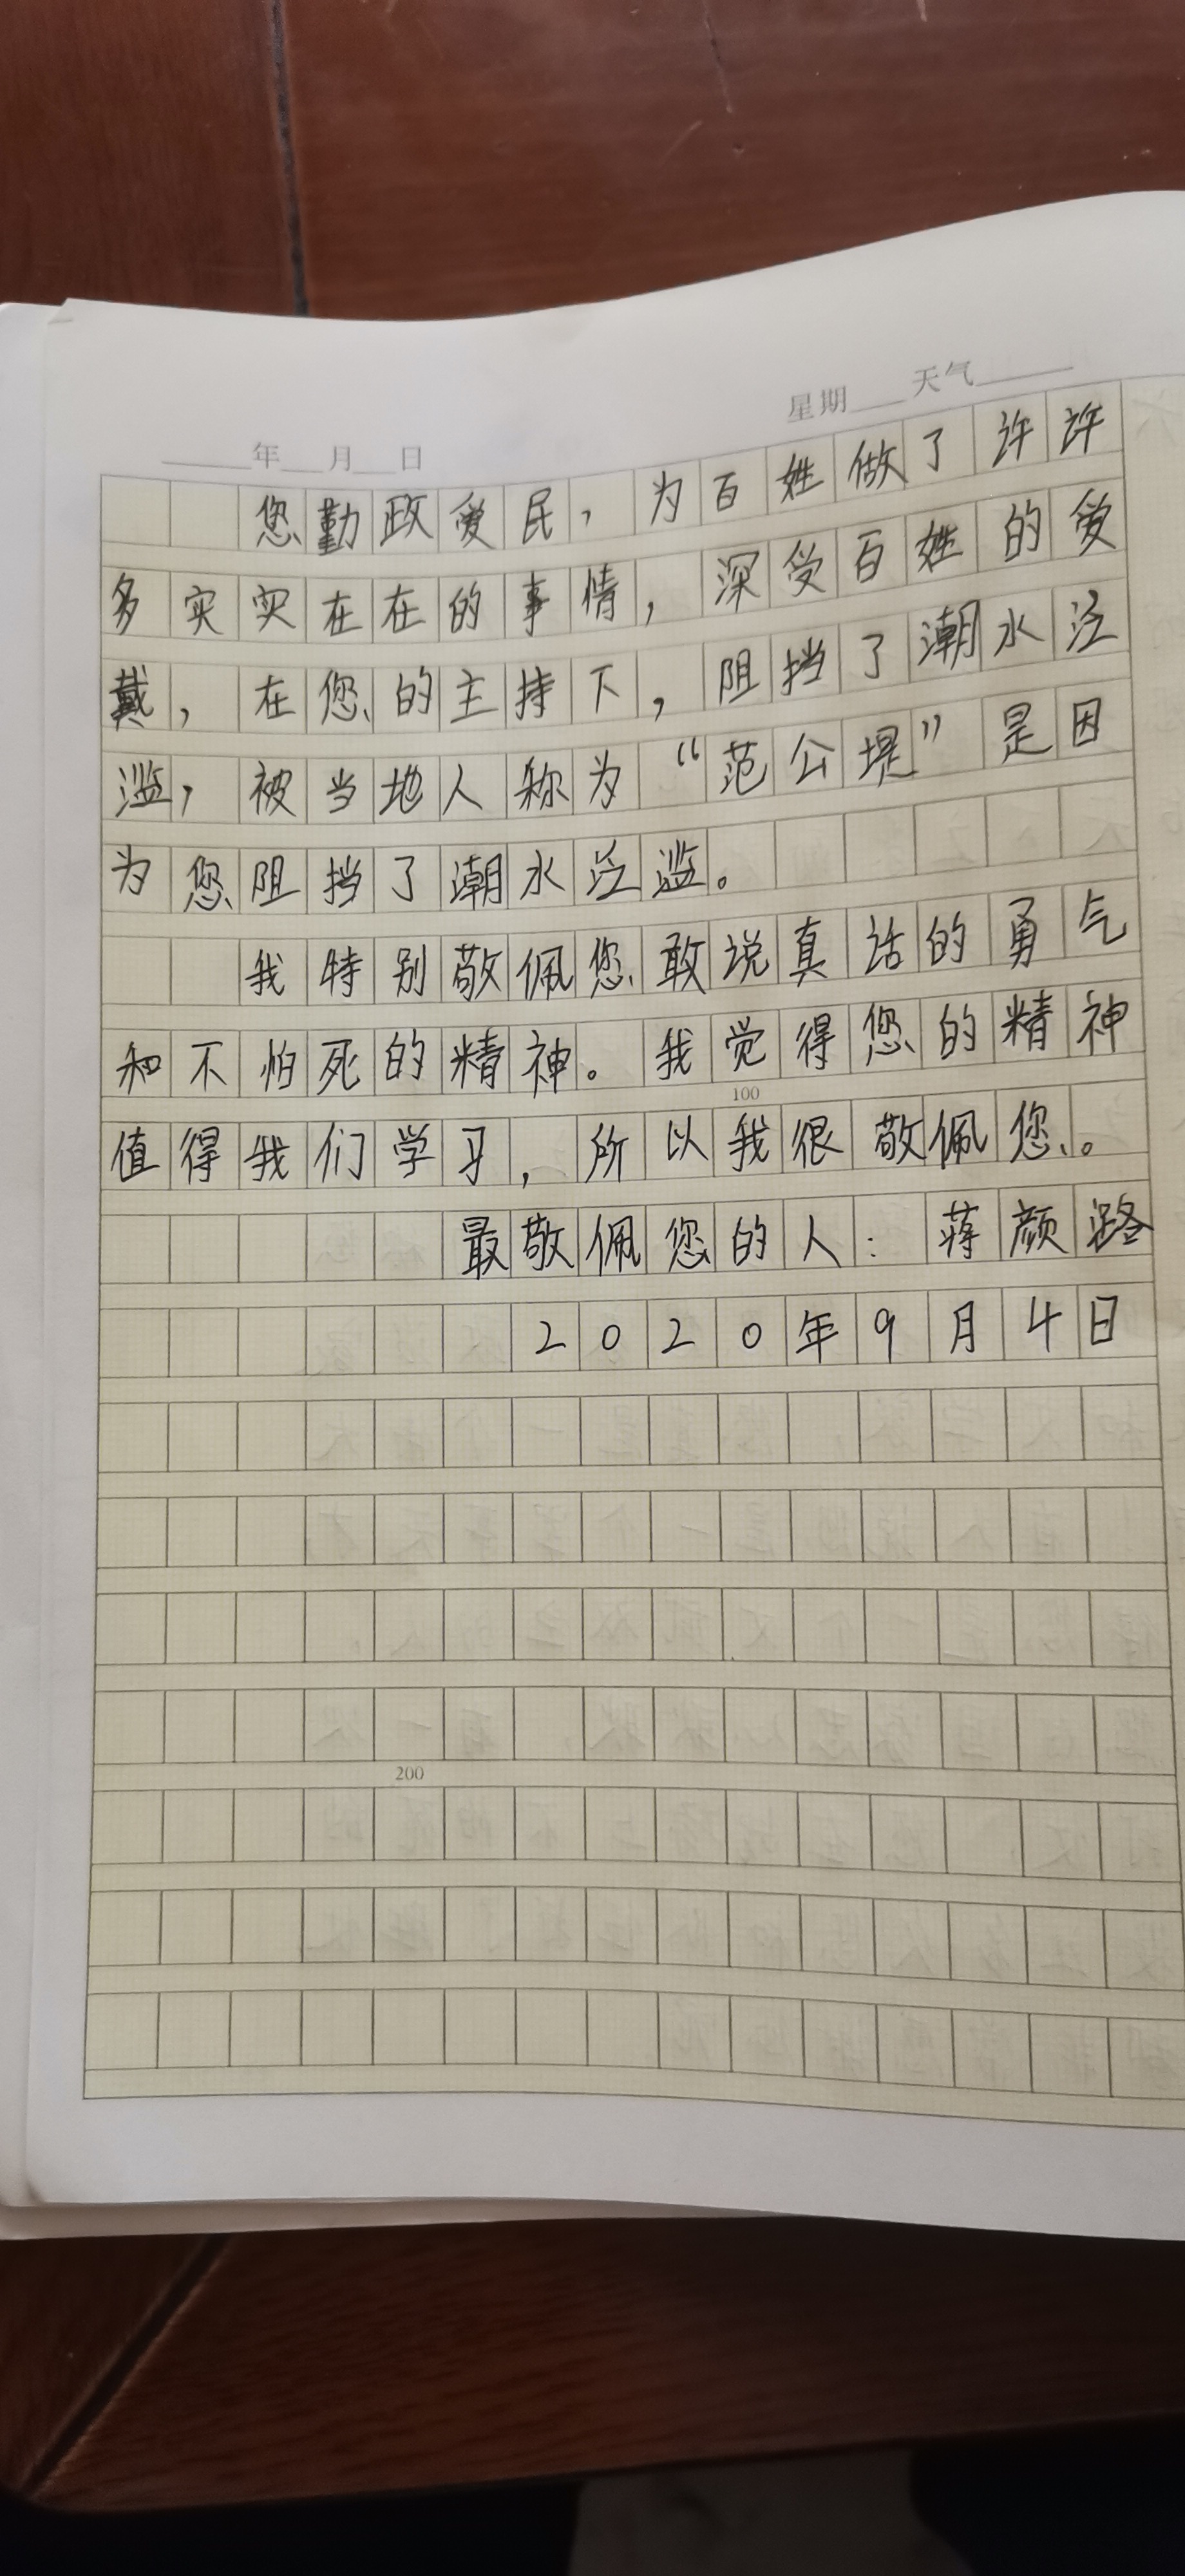 年 月 日 星期 天气
您勤政爱民，为百姓做了许许
多实实在在的事情，深受百姓的爱
戴，在您的主持下，阻挡了潮水泛
滥，被当地人称为“范公堤”是因
为您阻挡了潮水泛滥。
我特别敬佩您敢说真话的勇气
和不怕死的精神。我觉得您的精神
100
值得我们学习，所以我很敬佩您。
最敬佩您的人：蒋颜潞
2020年9月4日
200